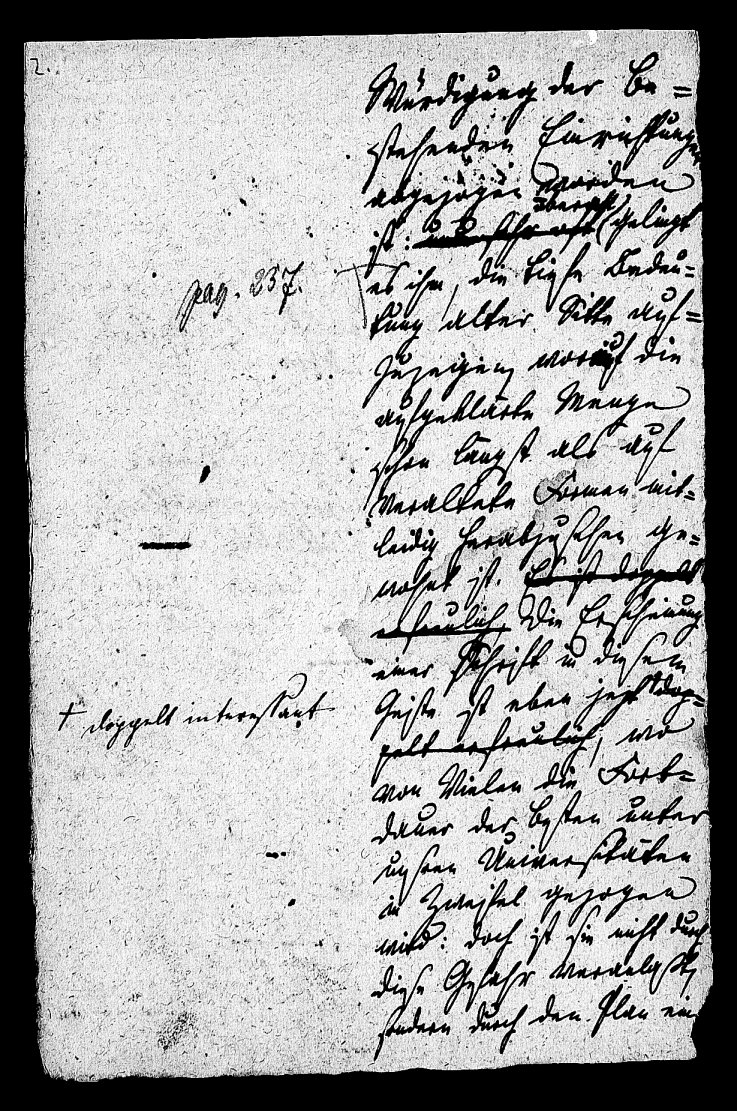 2.
Würdigung der Be=
stehenden Einrichtungen
ausgezogen worden
ist: und sehr oft überall gelingt
es ihm, die tiefe Bedeu=
tung alter Sitte auf=
zuzeigen, worauf die
aufgeklärte Menge
schon längst als auf
veraltete Formen mit=
leidig herabzusehen ge=
wohnt ist. Es ist doppelt
erfreulich, Die Erscheinung
einer Schrift in diesem
Geiste ist eben jetzt dop=
pelt erfreulich, wo
von Vielen die Fort=
dauer der besten unter
unsern Universitäten
in Zweifel gezogen
wird: doch ist sie nicht durch
diese Gefahr veranlaßt,
sondern durch den Plan ein
pag. 237.
+ doppelt interessant